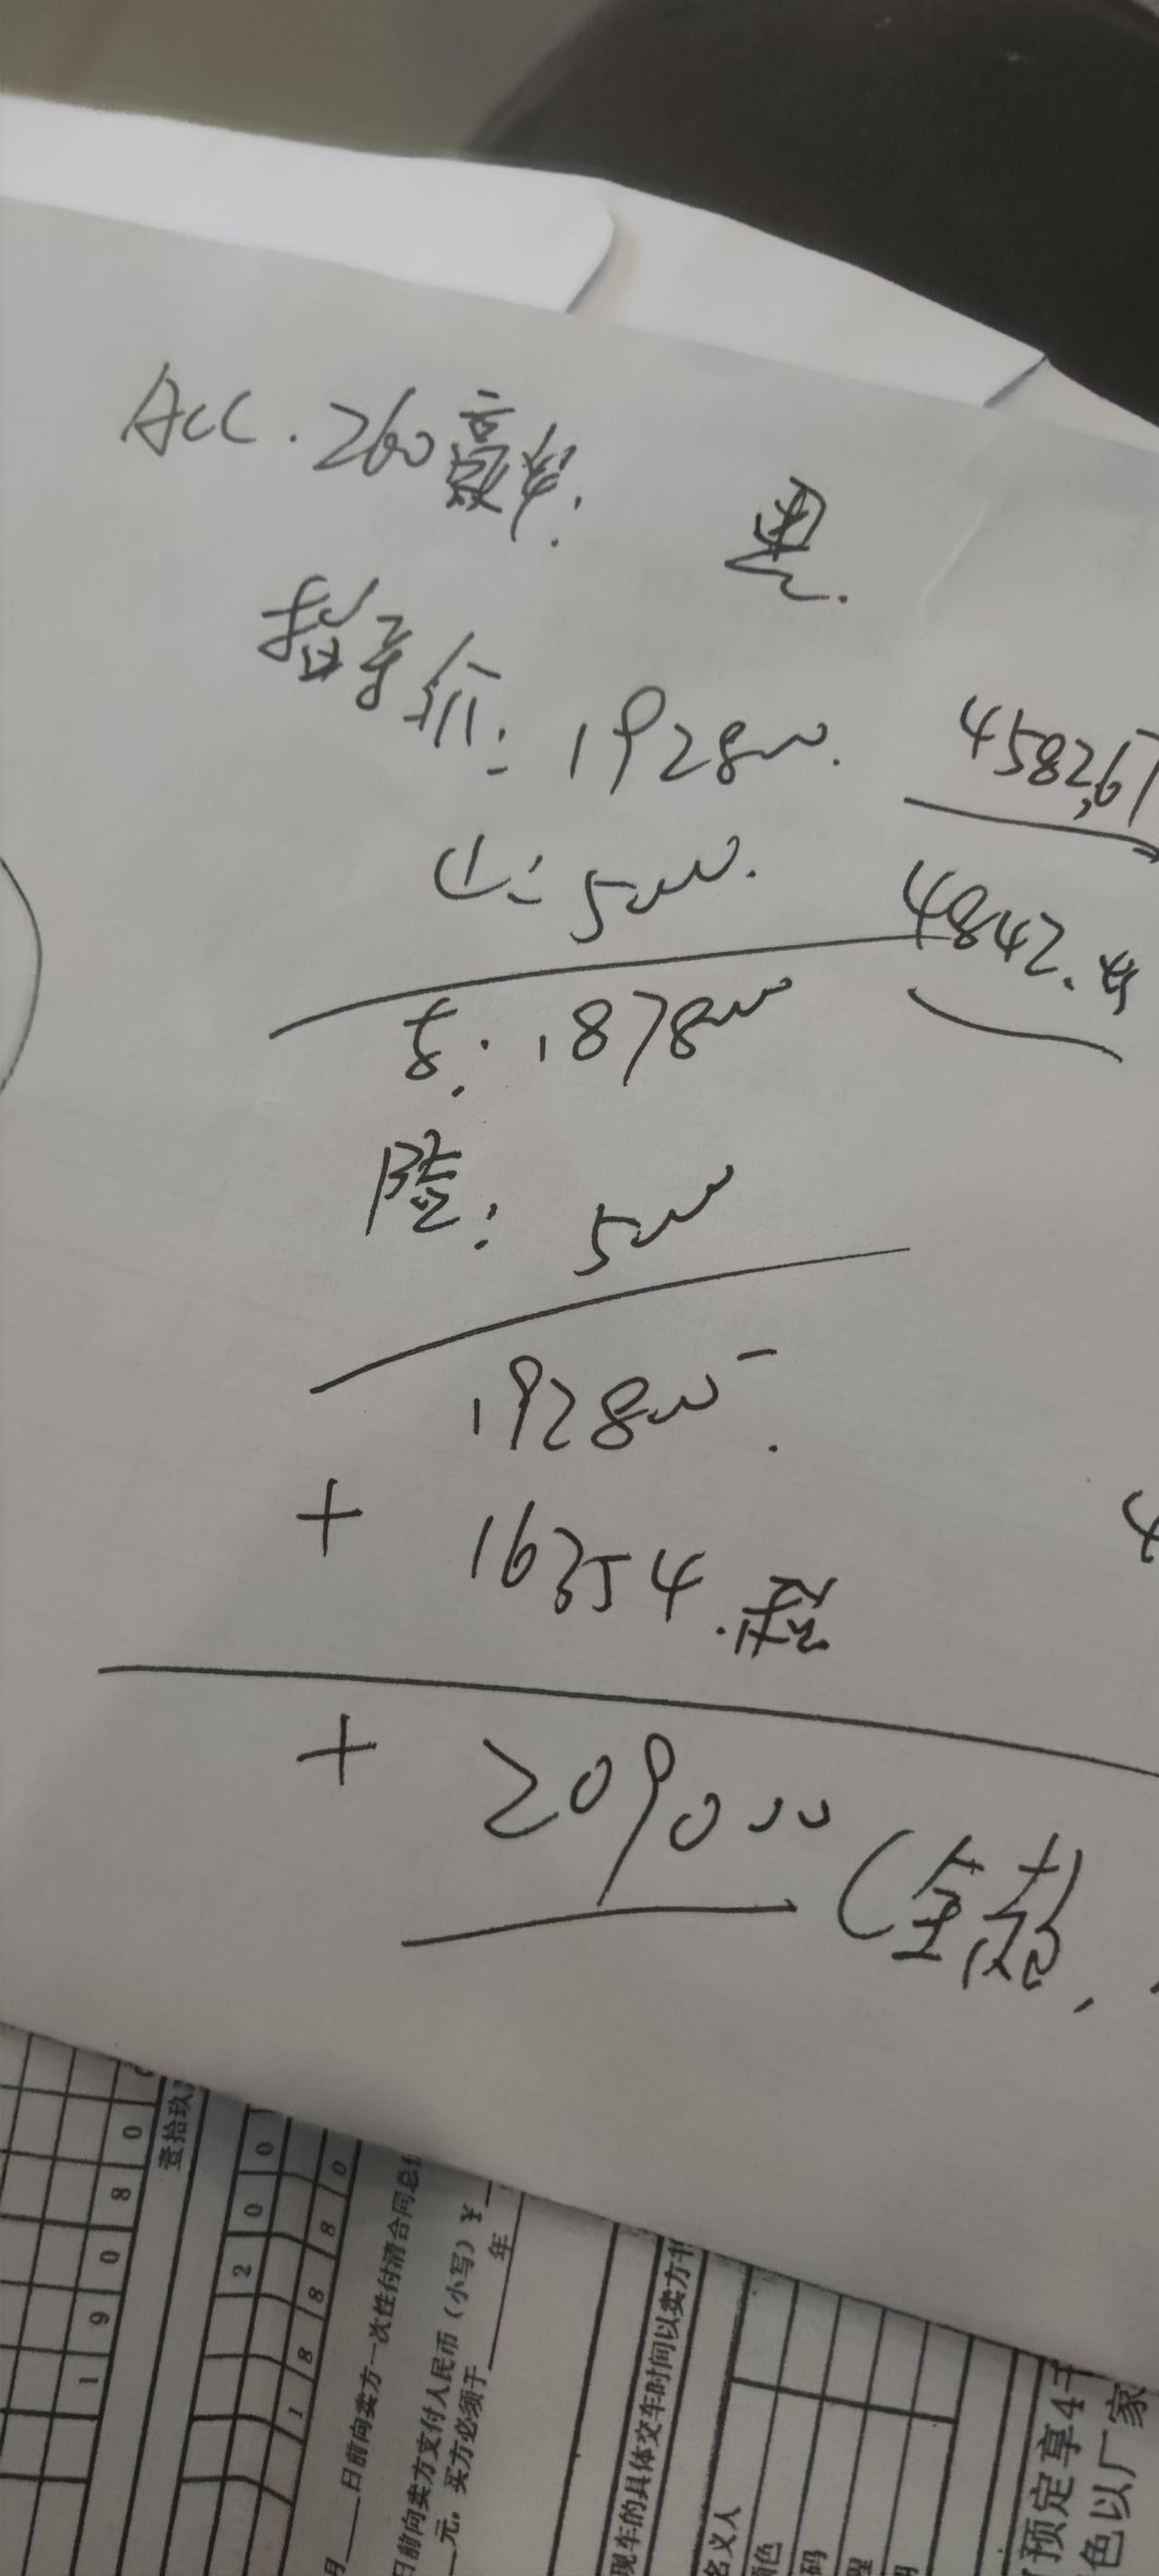 Acc. 260豪华.
黑.
指导价: 192800.
45826
↓: 5000.
4842.
187800
险: 5000
192800
+ 16354.税
+ 209000 (全款,
壹拾玖
1 9 0 8 0
2 0 0
1 8 8 8 0
月___日前向卖方一次性付清合同总价
日前向卖方支付人民币(小写)¥
元。买方必须于___年
现车的具体交车时间以卖方书
名义人
颜色
码
预定享4
色以厂家